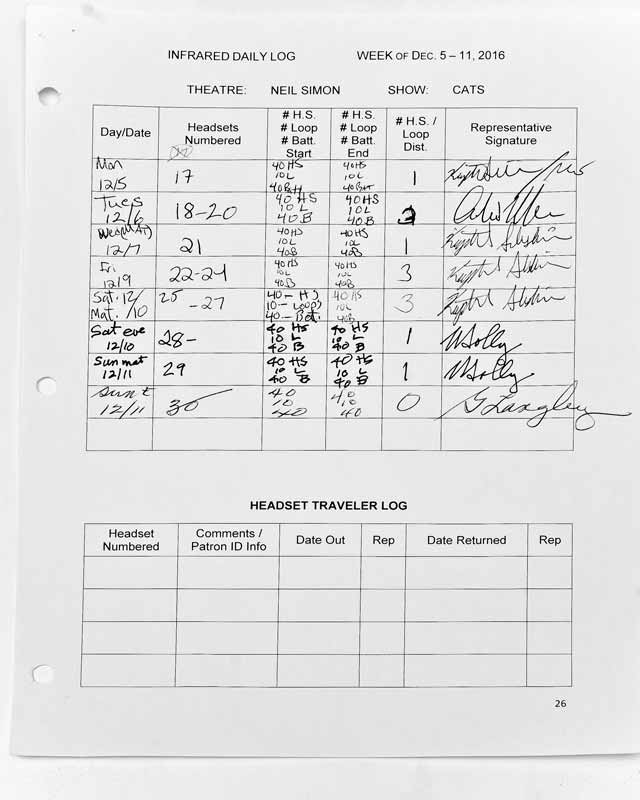 INFRARED DAILY LOG WEEK OF DEC. 5 – 11, 2016
THEATRE: NEIL SIMON SHOW: CATS
Day/Date Headsets Numbered # H.S. # Loop # Batt. Start # H.S. # Loop # Batt. End # H.S. / Loop Dist. Representative Signature
Mon 12/5 17 40 HS 10 L 40 Batt 40 HS 10 L 40 Batt 1
Tues 12/6 18-20 40 HS 10 L 40 B 40 HS 10 L 40 B 3
Wed (MAT) 12/7 21 40 HS 10 L 40 B 40 HS 10 L 40 B 1
Fri 12/9 22-24 40 HS 10 L 40 B 40 HS 10 L 40 B 3
Sat. 12/10 Mat. 25-27 40 - HS 10 - Loops 40 - Bat. 40 HS 10 L 40 B 3
Sat eve 12/10 28- 40 HS 10 L 40 B 40 HS 10 L 40 B 1
Sun mat 12/11 29 40 HS 10 L 40 B 40 HS 10 L 40 B 1
12/11 30 40 10 40 40 10 40 0 G Langley
HEADSET TRAVELER LOG
Headset Numbered Comments / Patron ID Info Date Out Rep Date Returned Rep
26